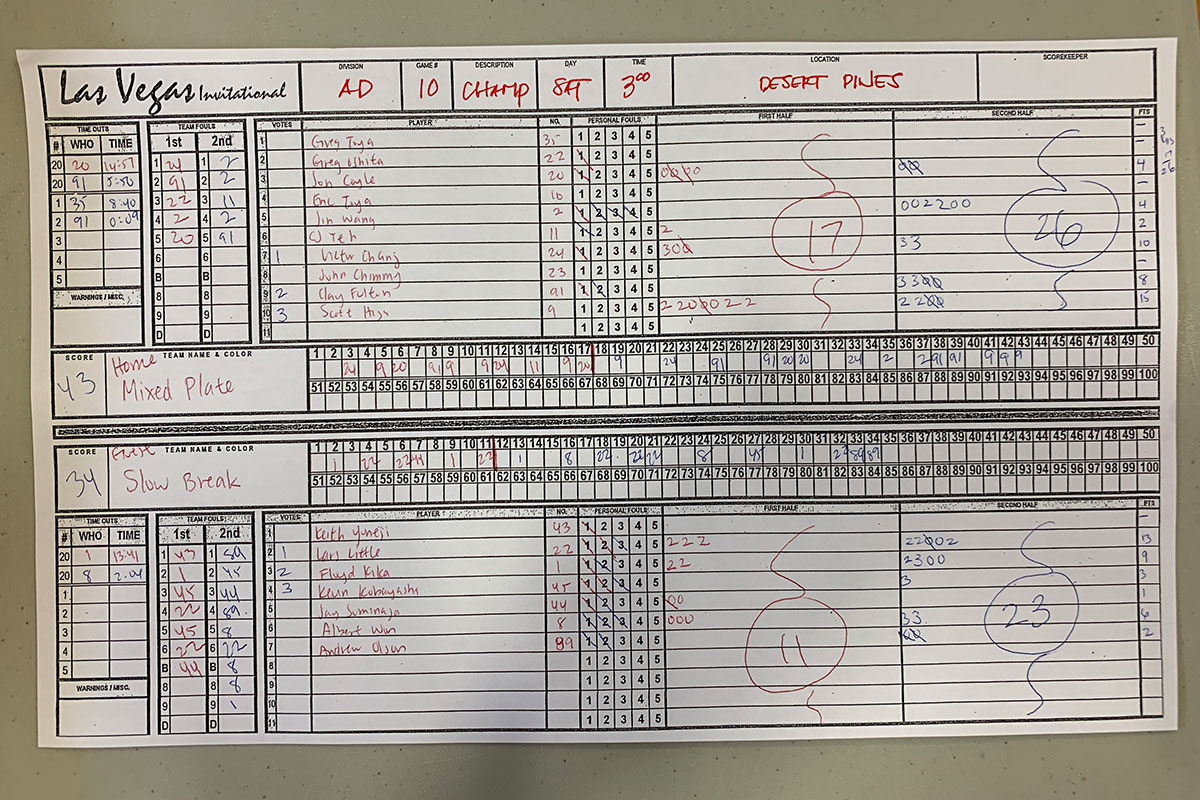 Las Vegas Invitational
DIVISION GAME # DESCRIPTION DAY TIME LOCATION SCOREKEEPER
AD 10 CHAMP SAT 3:00 DESERT PINES
TIME OUTS TEAM FOULS VOTES PLAYER NO. PERSONAL FOULS FIRST HALF SECOND HALF PTS
# WHO TIME 1st 2nd
1 Greg Toya 35 1 2 3 4 5 -
20 20 14:57 1 24 1 2
2 Greg Oshita 22 1 2 3 4 5 -
20 91 5:50 2 91 2 2
3 Jon Coyle 20 1 2 3 4 5 4
1 35 8:40 3 22 3 11
4 Eric Toya 10 1 2 3 4 5 -
2 91 0:09 4 2 4 2
5 Jin Wang 2 1 2 3 4 5 002200 4
3 5 20 5 91
6 CJ Teh 11 1 2 3 4 5 2 2
4 6 6
7 1 Victor Chang 24 1 2 3 4 5 300 33 10
5 B B
8 John Chimmy 23 1 2 3 4 5 -
WARNINGS / MISC. 8 8
9 2 Clay Fulton 91 1 2 3 4 5 3300 8
9 9
10 3 Scott Higa 9 1 2 3 4 5 2200022 2200 15
D D
11 1 2 3 4 5
17 26
SCORE TEAM NAME & COLOR
43 Home
Mixed Plate
1 2 3 4 5 6 7 8 9 10 11 12 13 14 15 16 17 18 19 20 21 22 23 24 25 26 27 28 29 30 31 32 33 34 35 36 37 38 39 40 41 42 43 44 45 46 47 48 49 50
24 9 20 91 9 9 24 11 9 20 9 24 91 91 20 20 24 2 2 91 91 9 9 9
51 52 53 54 55 56 57 58 59 60 61 62 63 64 65 66 67 68 69 70 71 72 73 74 75 76 77 78 79 80 81 82 83 84 85 86 87 88 89 90 91 92 93 94 95 96 97 98 99 100
SCORE TEAM NAME & COLOR
34 Guest
Slow Break
1 2 3 4 5 6 7 8 9 10 11 12 13 14 15 16 17 18 19 20 21 22 23 24 25 26 27 28 29 30 31 32 33 34 35 36 37 38 39 40 41 42 43 44 45 46 47 48 49 50
1 22 22 44 1 22 1 8 22 22 22 8 45 1 22 89 89
51 52 53 54 55 56 57 58 59 60 61 62 63 64 65 66 67 68 69 70 71 72 73 74 75 76 77 78 79 80 81 82 83 84 85 86 87 88 89 90 91 92 93 94 95 96 97 98 99 100
TIME OUTS TEAM FOULS VOTES PLAYER NO. PERSONAL FOULS FIRST HALF SECOND HALF PTS
# WHO TIME 1st 2nd
1 43 1 2 3 4 5 -
20 1 13:41 1 47 1 89
2 1 Lars Little 22 1 2 3 4 5 222 22002 13
20 8 2:04 2 1 2 45
3 2 Floyd Kika 1 1 2 3 4 5 22 2300 9
1 3 45 3 44
4 3 Kevin Kobayashi 45 1 2 3 4 5 3 3
2 4 22 4 89
5 Jay 44 1 2 3 4 5 00 1
3 5 45 5 8
6 Albert Wun 8 1 2 3 4 5 000 33 6
4 6 22 6 22
7 Andrew Olson 89 1 2 3 4 5 2
5 B 44 B 8
8 1 2 3 4 5
WARNINGS / MISC. 8 8 8
9 1 2 3 4 5
9 9 1
10 1 2 3 4 5
D D
11 1 2 3 4 5
11 23